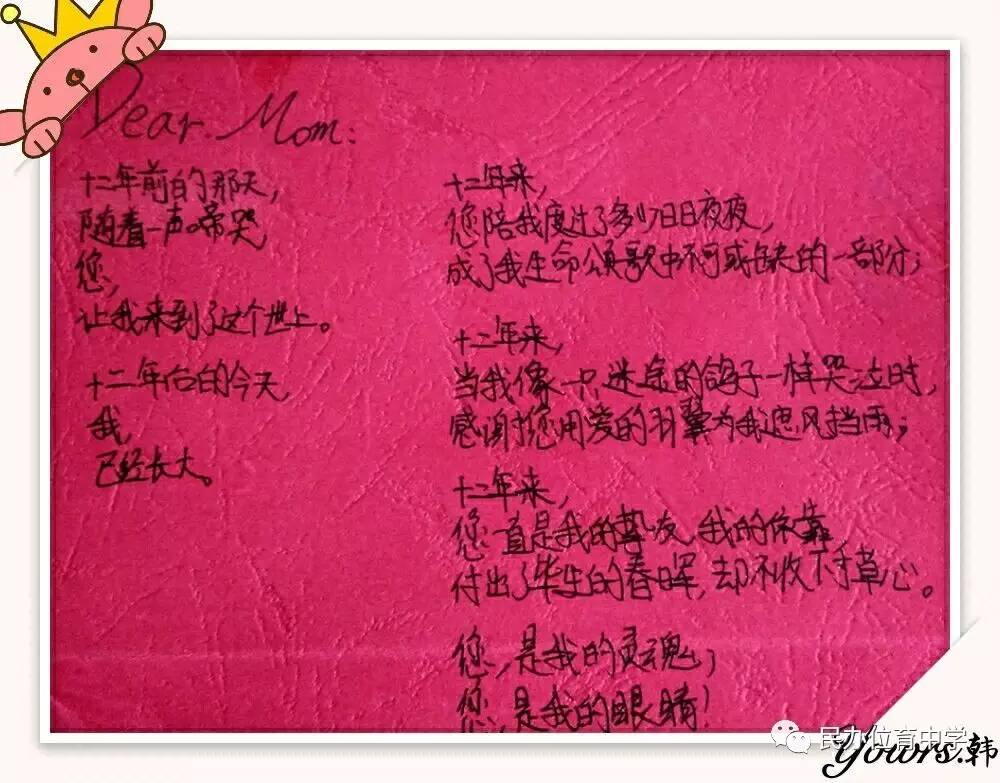 Dear. Mom:
十二年前的那天,
随着一声啼哭,
您,
让我来到了这个世上。
十二年后的今天,
我,
已经长大。
十二年来,
您陪我度过了多少日日夜夜,
成了我生命颂歌中不可或缺的一部分;
十二年来,
当我像一只迷途的鸽子一样哭泣时,
感谢您用爱的羽翼为我遮风挡雨;
十二年来,
您一直是我的挚友,我的依靠,
付出了毕生的春晖,却不收下寸草心。
您,是我的灵魂;
您,是我的眼睛!
民办位育中学
Yours.韩